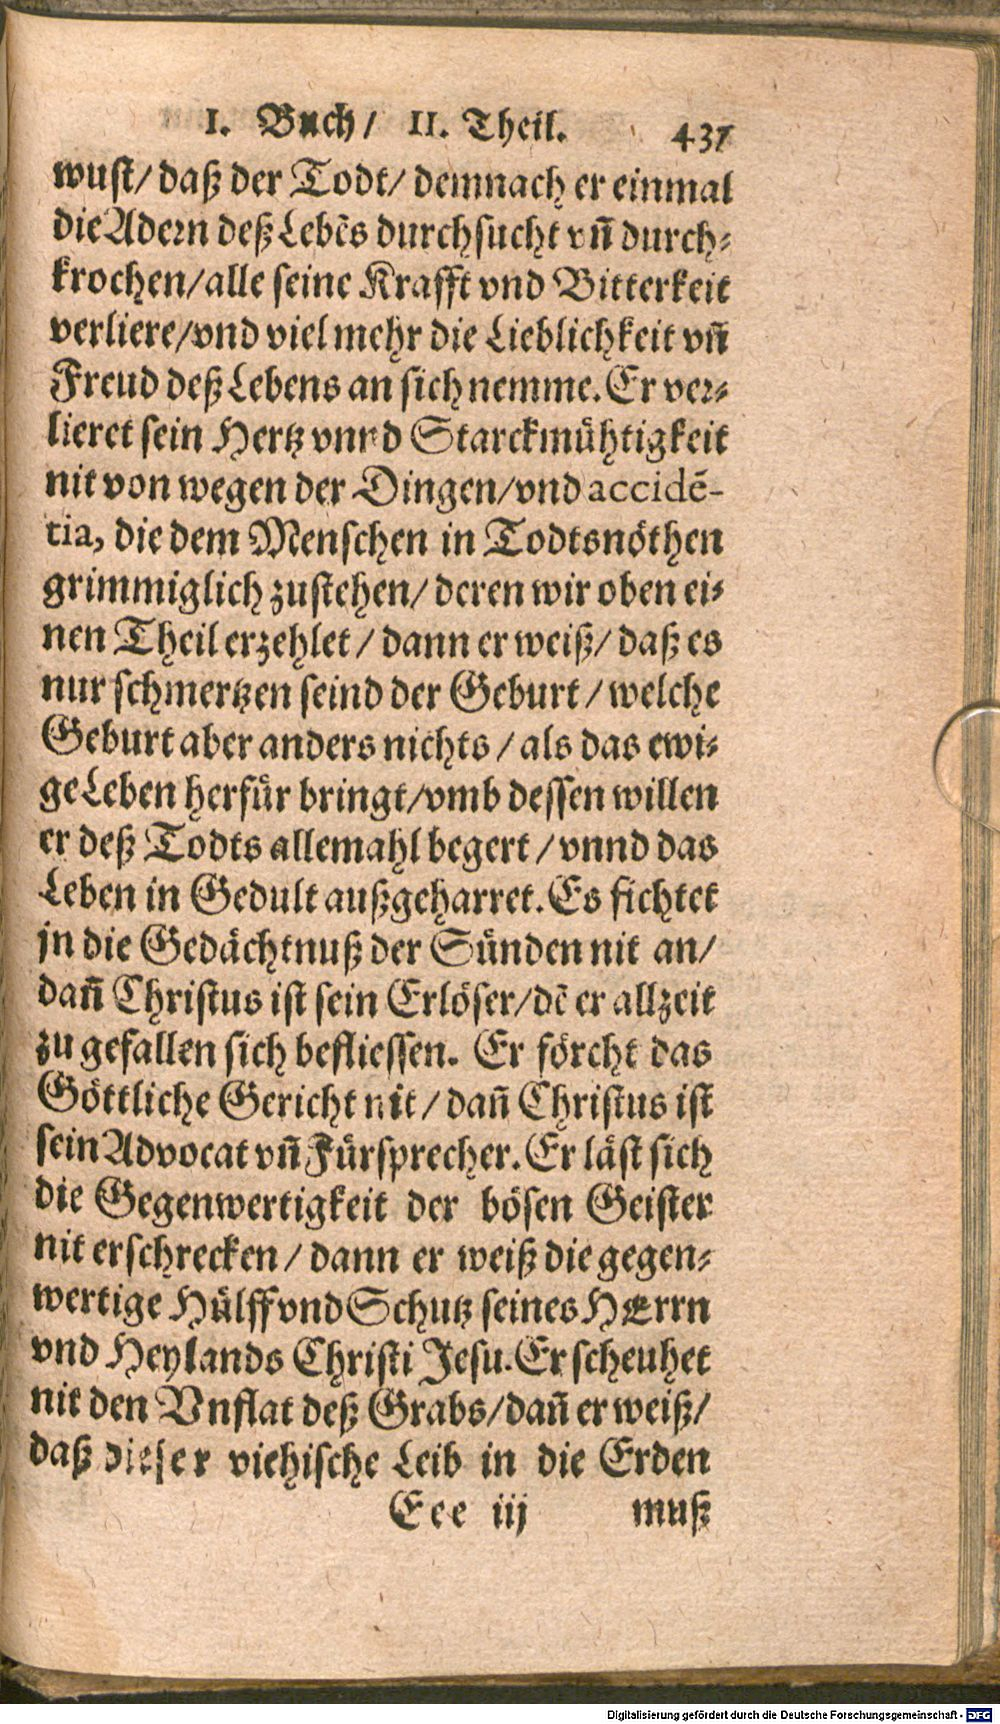 I. Buch / II. Theil. 437
wust / daß der Todt / demnach er einmal
die Adern deß Lebẽs durchsucht vñ durch-
krochen / alle seine Krafft vnd Bitterkeit
verliere / vnd viel mehr die Lieblichkeit vñ
Freud deß Lebens an sich nemme. Er ver-
lieret sein Hertz vnnd Starckmühtigkeit
nit von wegen der Dingen / vnd accidẽ-
tia, die dem Menschen in Todtsnöthen
grimmiglich zustehen / deren wir oben ei-
nen Theil erzehlet / dann er weiß / daß es
nur schmertzen seind der Geburt / welche
Geburt aber anders nichts / als das ewi-
ge Leben herfür bringt / vmb dessen willen
er deß Todts allemahl begert / vnnd das
Leben in Gedult außgeharret. Es fichtet
jn die Gedächtnuß der Sünden nit an /
dañ Christus ist sein Erlöser / dẽ er allzeit
zu gefallen sich befliessen. Er förcht das
Göttliche Gericht nit / dañ Christus ist
sein Advocat vñ Fürsprecher. Er läst sich
die Gegenwertigkeit der bösen Geister
nit erschrecken / dann er weiß die gegen-
wertige Hülff vnd Schutz seines HErrn
vnd Heylands Christi Jesu. Er scheuhet
nit den Vnflat deß Grabs / dañ er weiß /
daß dieser viehische Leib in die Erden
Eee iij muß
Digitalisierung gefördert durch die Deutsche Forschungsgemeinschaft - DFG